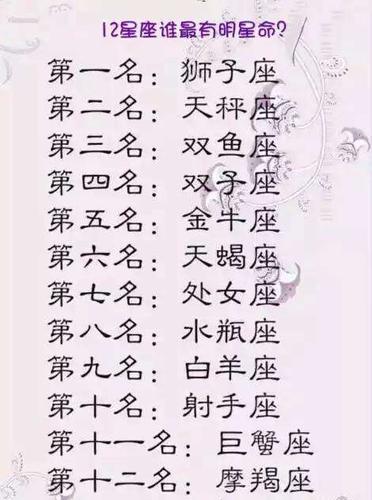 12星座谁最有明星命?
第一名：狮子座
第二名：天秤座
第三名：双鱼座
第四名：双子座
第五名：金牛座
第六名：天蝎座
第七名：处女座
第八名：水瓶座
第九名：白羊座
第十名：射手座
第十一名：巨蟹座
第十二名：摩羯座